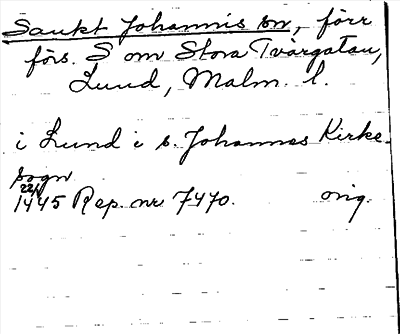 Sankt Johannis sn, förr
förs. S om Stora Tvärgatan,
Lund, Malm. l.
i Lund i s. Johannes Kirke-
sogn
22/1
1445 Rep. nr 7470. orig.